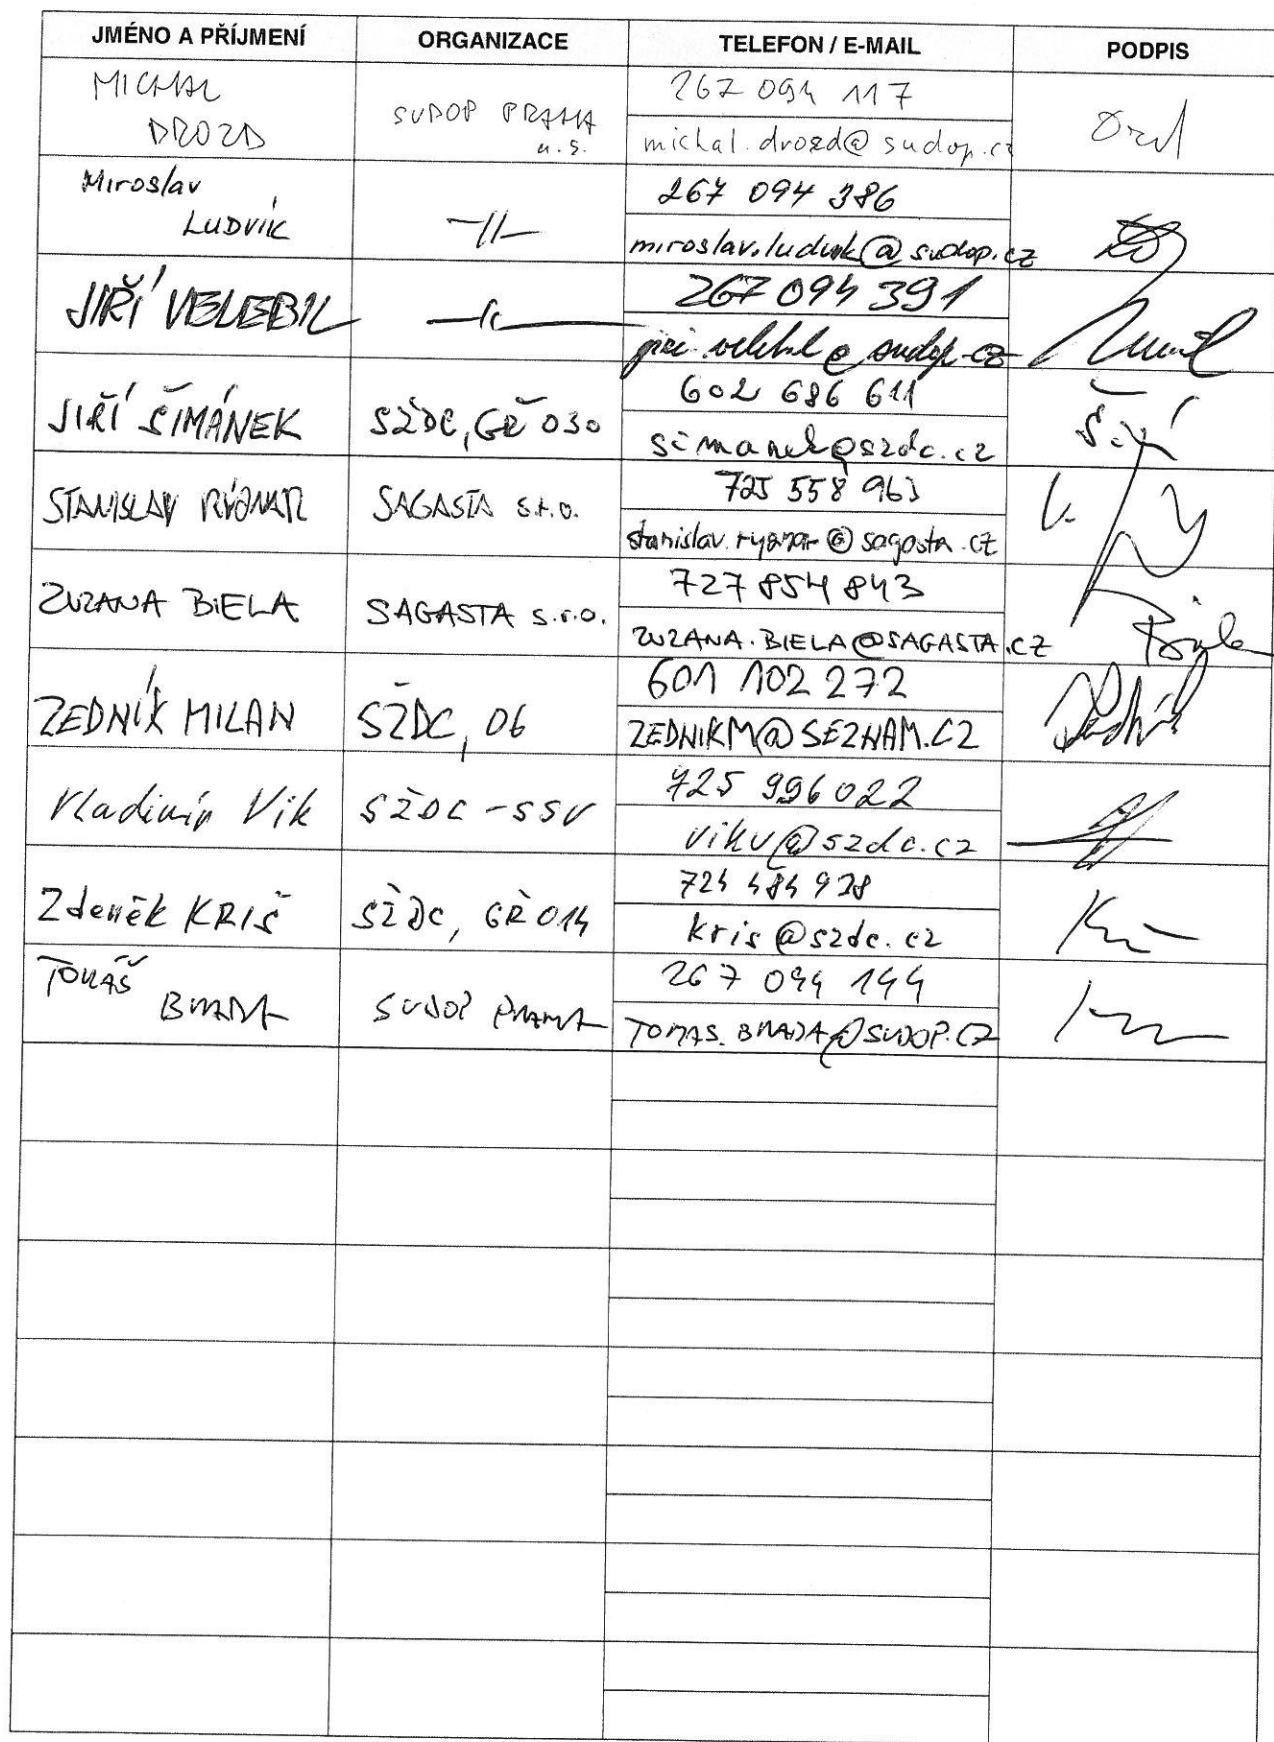 JMÉNO A PŘÍJMENÍ ORGANIZACE TELEFON / E-MAIL PODPIS
MICHAL 267 094 117
DROZD SUDOP PRAHA a.s. michal.drozd@sudop.cz
Miroslav 267 094 386
LUDVÍK -//- miroslav.ludvik@sudop.cz
JIŘÍ VELEBIL -//- 267 094 391
jiri.velebil@sudop.cz
JIŘÍ ŠIMÁNEK SŽDC, GŘ 030 602 686 611
simanek@szdc.cz
STANISLAV RÝZNAR SAGASTA s.r.o. 725 558 963
stanislav.ryznar@sagasta.cz
ZUZANA BIELA SAGASTA s.r.o. 727 854 843
ZUZANA.BIELA@SAGASTA.CZ
ZEDNÍK MILAN SŽDC, 06 601 102 272
ZEDNIKM@SEZNAM.CZ
Vladimír Vik SŽDC - SSV 725 996 022
vikv@szdc.cz
Zdeněk KRIŠ SŽDC, GŘ 014 724 484 928
kris@szdc.cz
TOMÁŠ 267 094 144
BRADA SUDOP PRAHA TOMAS.BRADA@SUDOP.CZ